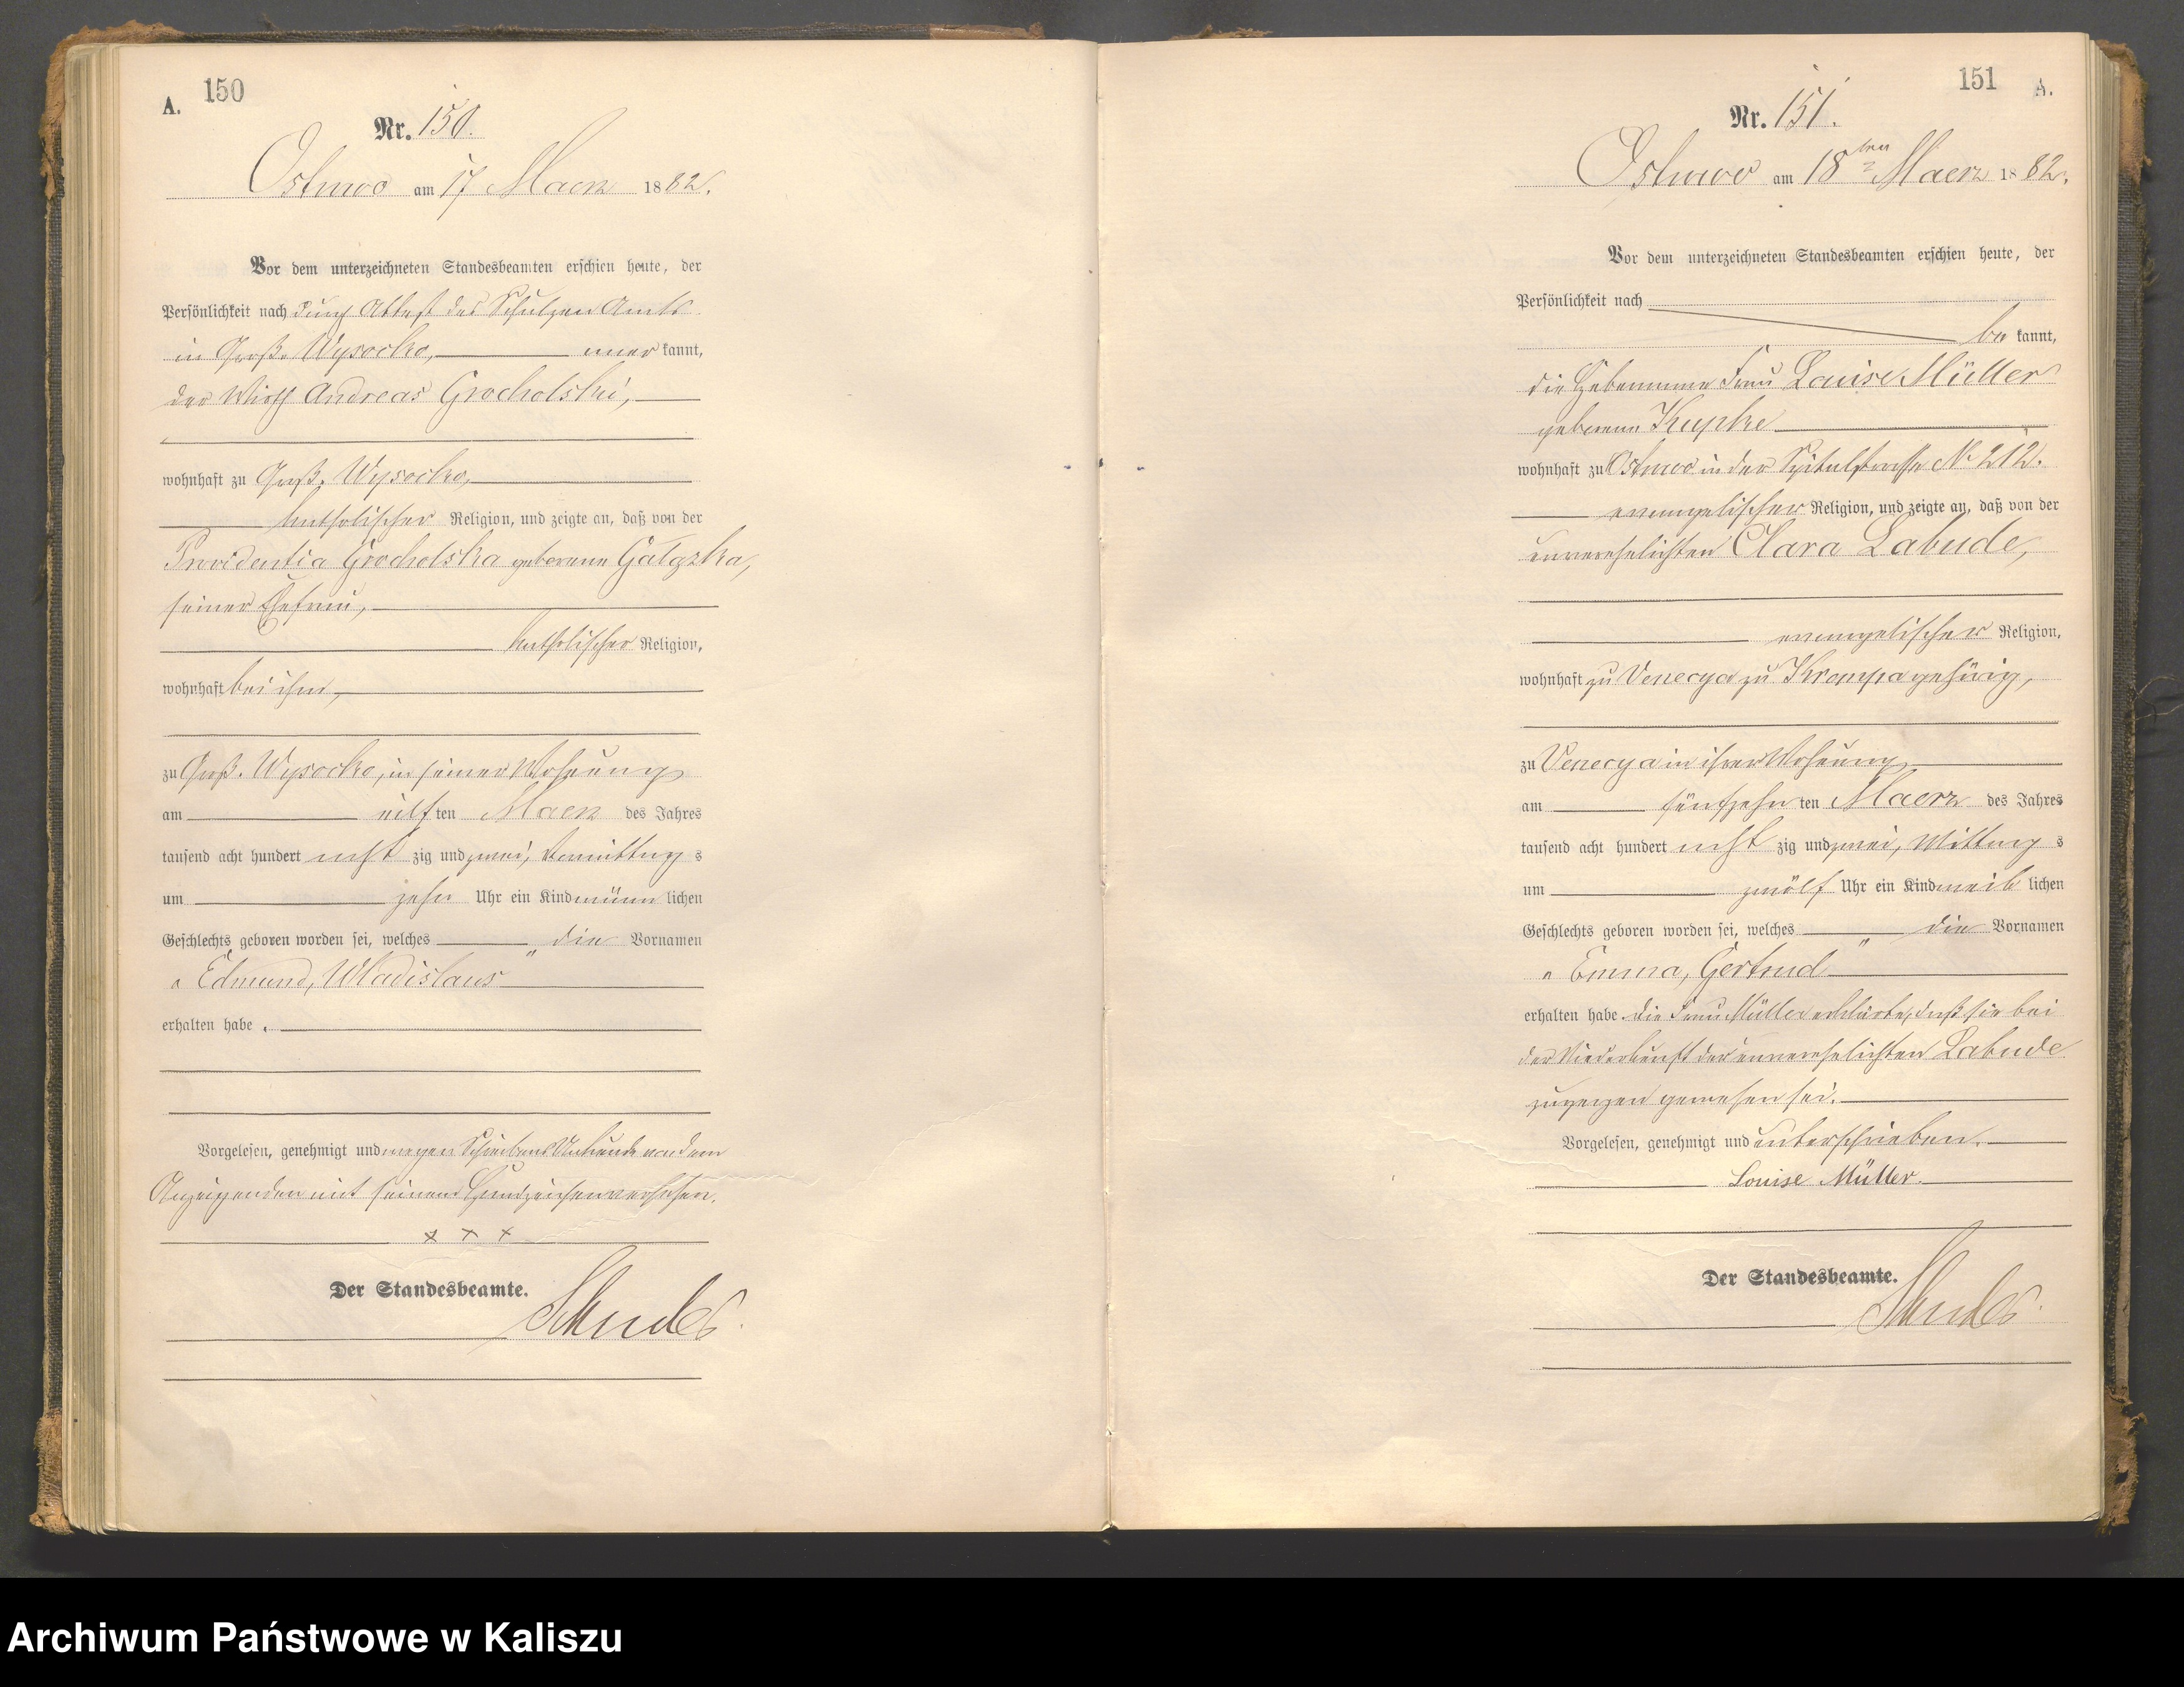 A. 150
Nr. 150.
Ostrowo am 17 Maerz 1882.
Vor dem unterzeichneten Standesbeamten erschien heute, der
Persönlichkeit nach durch Attest des Schulzen Amts
in Groß. Wysocko, aner kannt,
der Wirth Andreas Grocholski,
wohnhaft zu Groß. Wysocko,
katholischer Religion, und zeigte an, daß von der
Providentia Grocholska geborene Gałązka,
seiner Ehefrau,
katholischer Religion,
wohnhaft bei ihm,
zu Groß. Wysocko, in seiner Wohnung
am eilf ten Maerz des Jahres
tausend acht hundert acht zig und zwei, Vormittag s
um zehn Uhr ein Kind männ lichen
Geschlechts geboren worden sei, welches die Vornamen
„Edmund, Wladislaus"
erhalten habe.
Vorgelesen, genehmigt und wegen Schreibens Unkunde von dem
Anzeigenden mit seinem Handzeichen versehen.
x x x
Der Standesbeamte.
151 A.
Nr. 151.
Ostrowo am 18ten Maerz 1882.
Vor dem unterzeichneten Standesbeamten erschien heute, der
Persönlichkeit nach
be kannt,
die Hebamme Frau Louise Müller
geborene Kupke
wohnhaft zu Ostrowo in der Spitalstrasse No 212.
evangelischer Religion, und zeigte an, daß von der
unverehelichten Clara Labude,
evangelischer Religion,
wohnhaft zu Venecya zu Krempa gehörig,
zu Venecya in ihrer Wohnung
am fünfzehn ten Maerz des Jahres
tausend acht hundert acht zig und zwei, Mittag s
um zwölf Uhr ein Kind weib lichen
Geschlechts geboren worden sei, welches die Vornamen
„Emma, Gertrud"
erhalten habe. Die Frau Müller erklärte, daß sie bei
der Niederkunft der unverehelichten Labude
zugegen gewesen sei.
Vorgelesen, genehmigt und unterschrieben.
Louise Müller.
Der Standesbeamte.
Archiwum Państwowe w Kaliszu